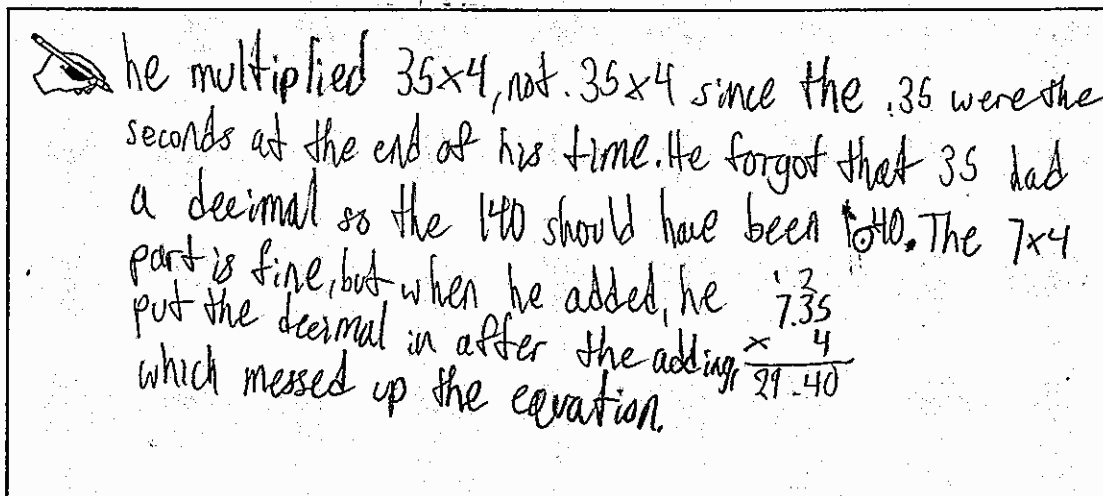 he multiplied 35x4, not .35x4 since the .35 were the
seconds at the end of his time. He forgot that 35 had
a decimal so the 140 should have been 1.40. The 7x4
part is fine, but when he added, he
put the decimal in after the adding,
which messed up the equation.
1 2
7.35
x 4
29.40